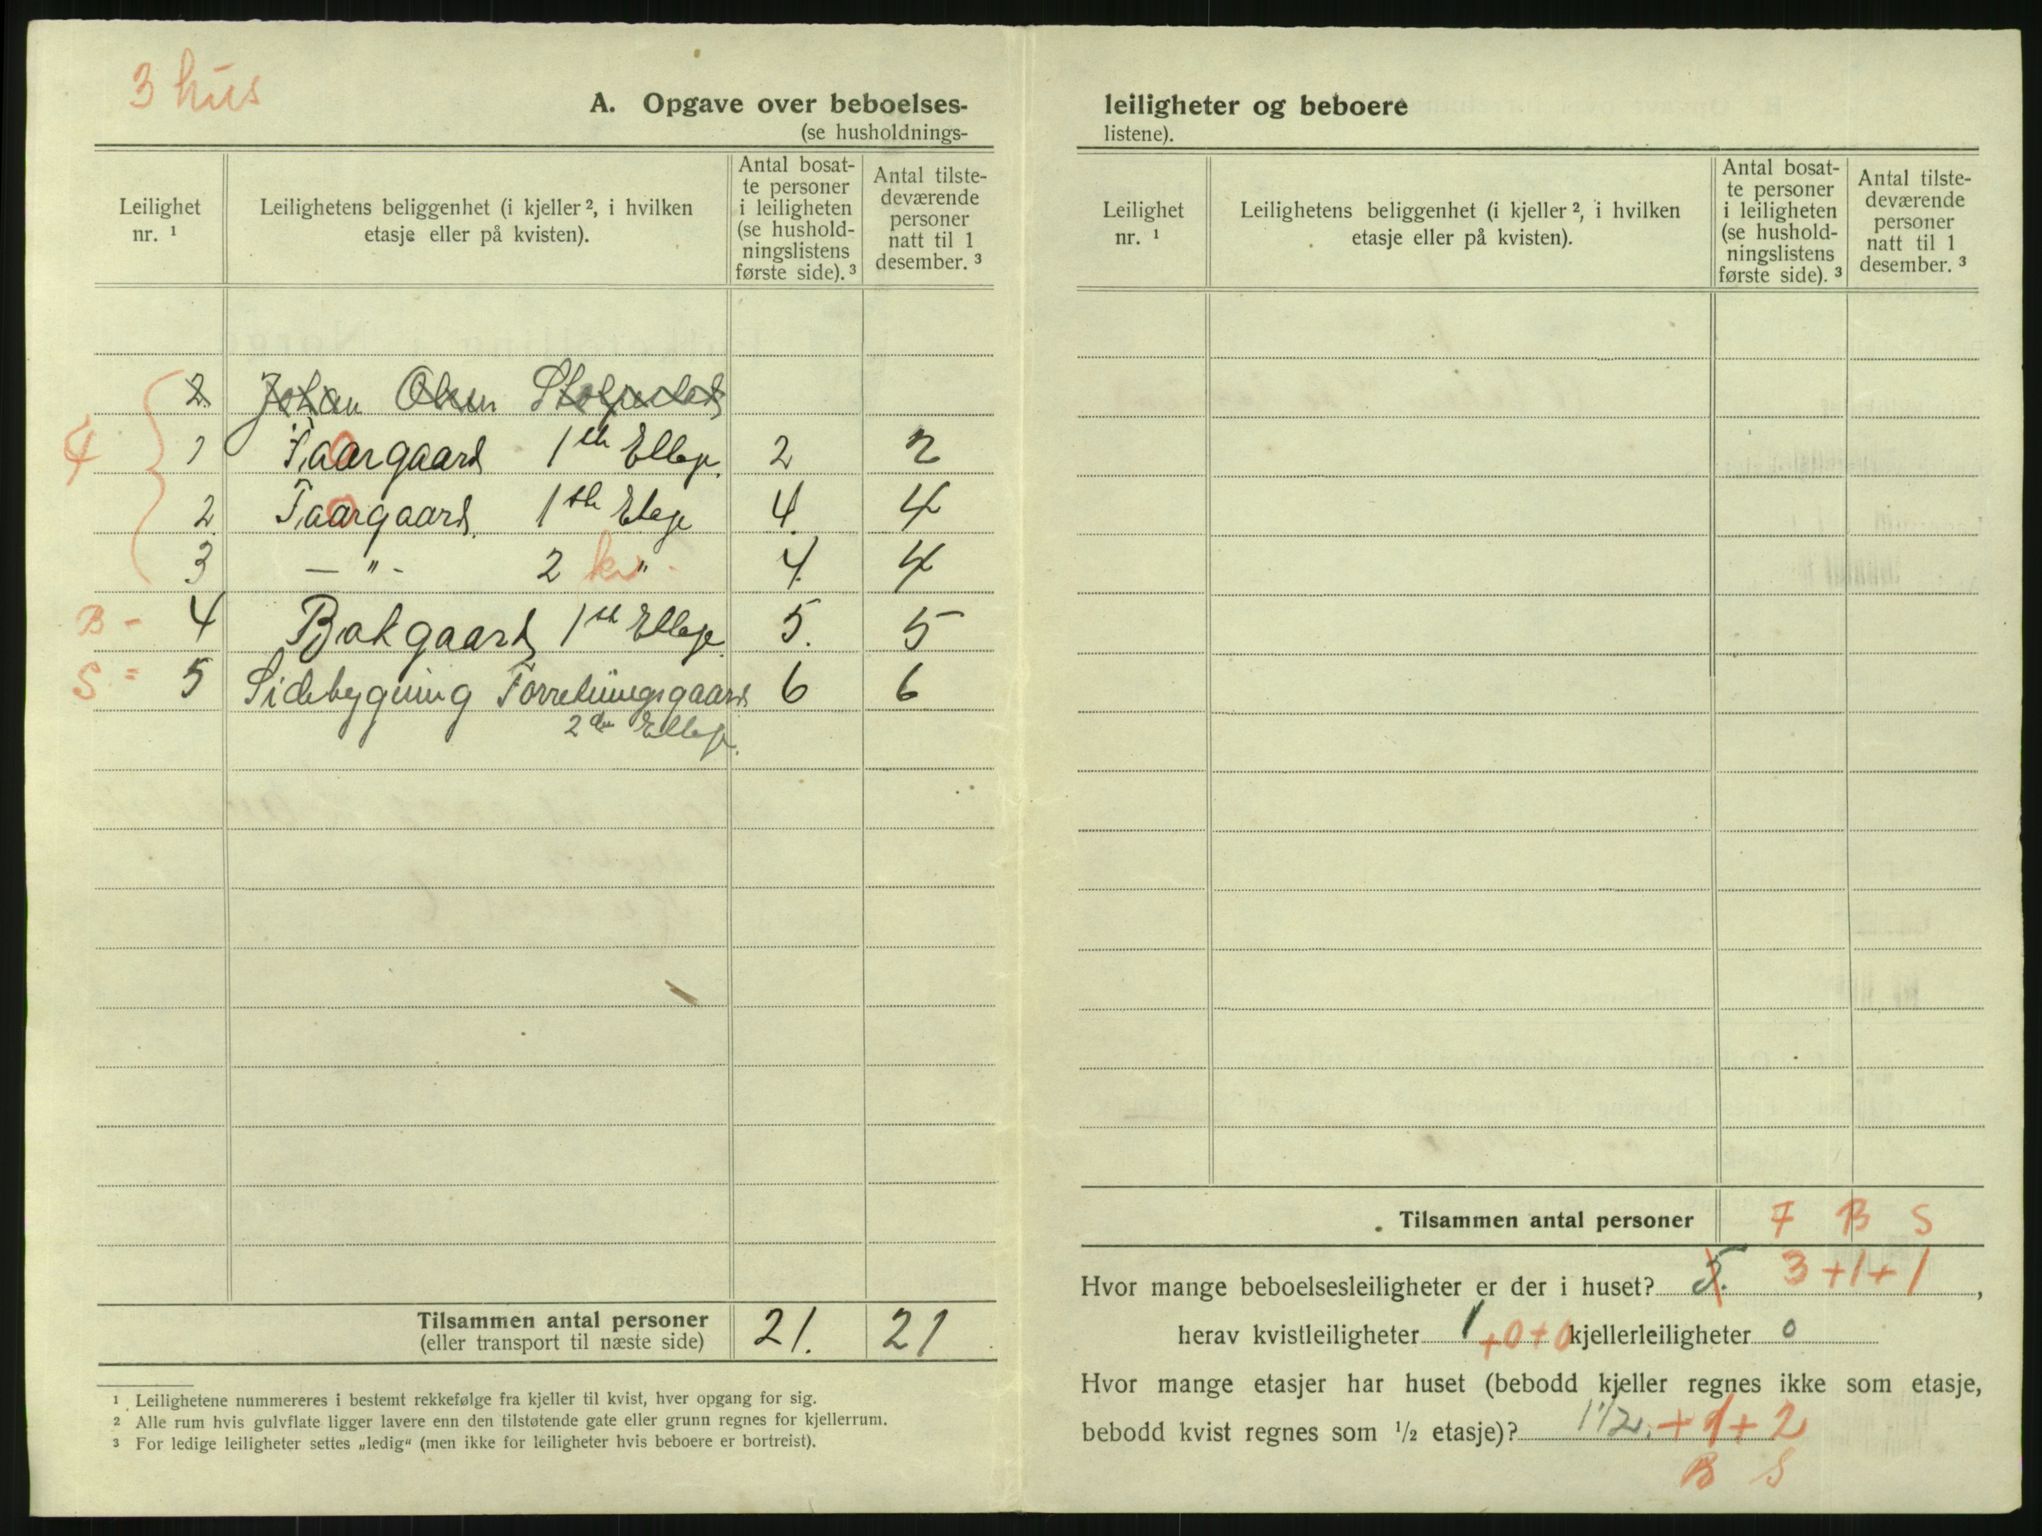 3 hus
A. Opgave over beboelses-
(se husholdnings-
Leilighet nr. ¹
Leilighetens beliggenhet (i kjeller ², i hvilken etasje eller på kvisten).
Antal bosat-
te personer
i leiligheten
(se hushold-
ningslistens
første side). ³
Antal tilste-
deværende
personer
natt til 1
desember. ³
2 Johan Olsen
1 Taargaard 1ste Ettage. 2 2
2 Taargaard 1ste Etage 4 4
3 — " - 2 kv " 4 4
B - 4 Bakgaard 1ste Ettage 5. 5
S = 5 Sidebygning Forretningsgaard 6 6
2den Ettage.
Tilsammen antal personer 21. 21
(eller transport til næste side)
¹ Leilighetene nummereres i bestemt rekkefølge fra kjeller til kvist, hver opgang for sig.
² Alle rum hvis gulvflate ligger lavere enn den tilstøtende gate eller grunn regnes for kjellerrum.
³ For ledige leiligheter settes „ledig“ (men ikke for leiligheter hvis beboere er bortreist).
leiligheter og beboere
listene).
Leilighet nr. ¹
Leilighetens beliggenhet (i kjeller ², i hvilken etasje eller på kvisten).
Antal bosat-
te personer
i leiligheten
(se hushold-
ningslistens
første side). ³
Antal tilste-
deværende
personer
natt til 1
desember. ³
Tilsammen antal personer F B S
Hvor mange beboelsesleiligheter er der i huset? 5. 3+1+1,
herav kvistleiligheter 1 +0+0 kjellerleiligheter 0
Hvor mange etasjer har huset (bebodd kjeller regnes ikke som etasje,
bebodd kvist regnes som ½ etasje)? 1½. +1+2
B S